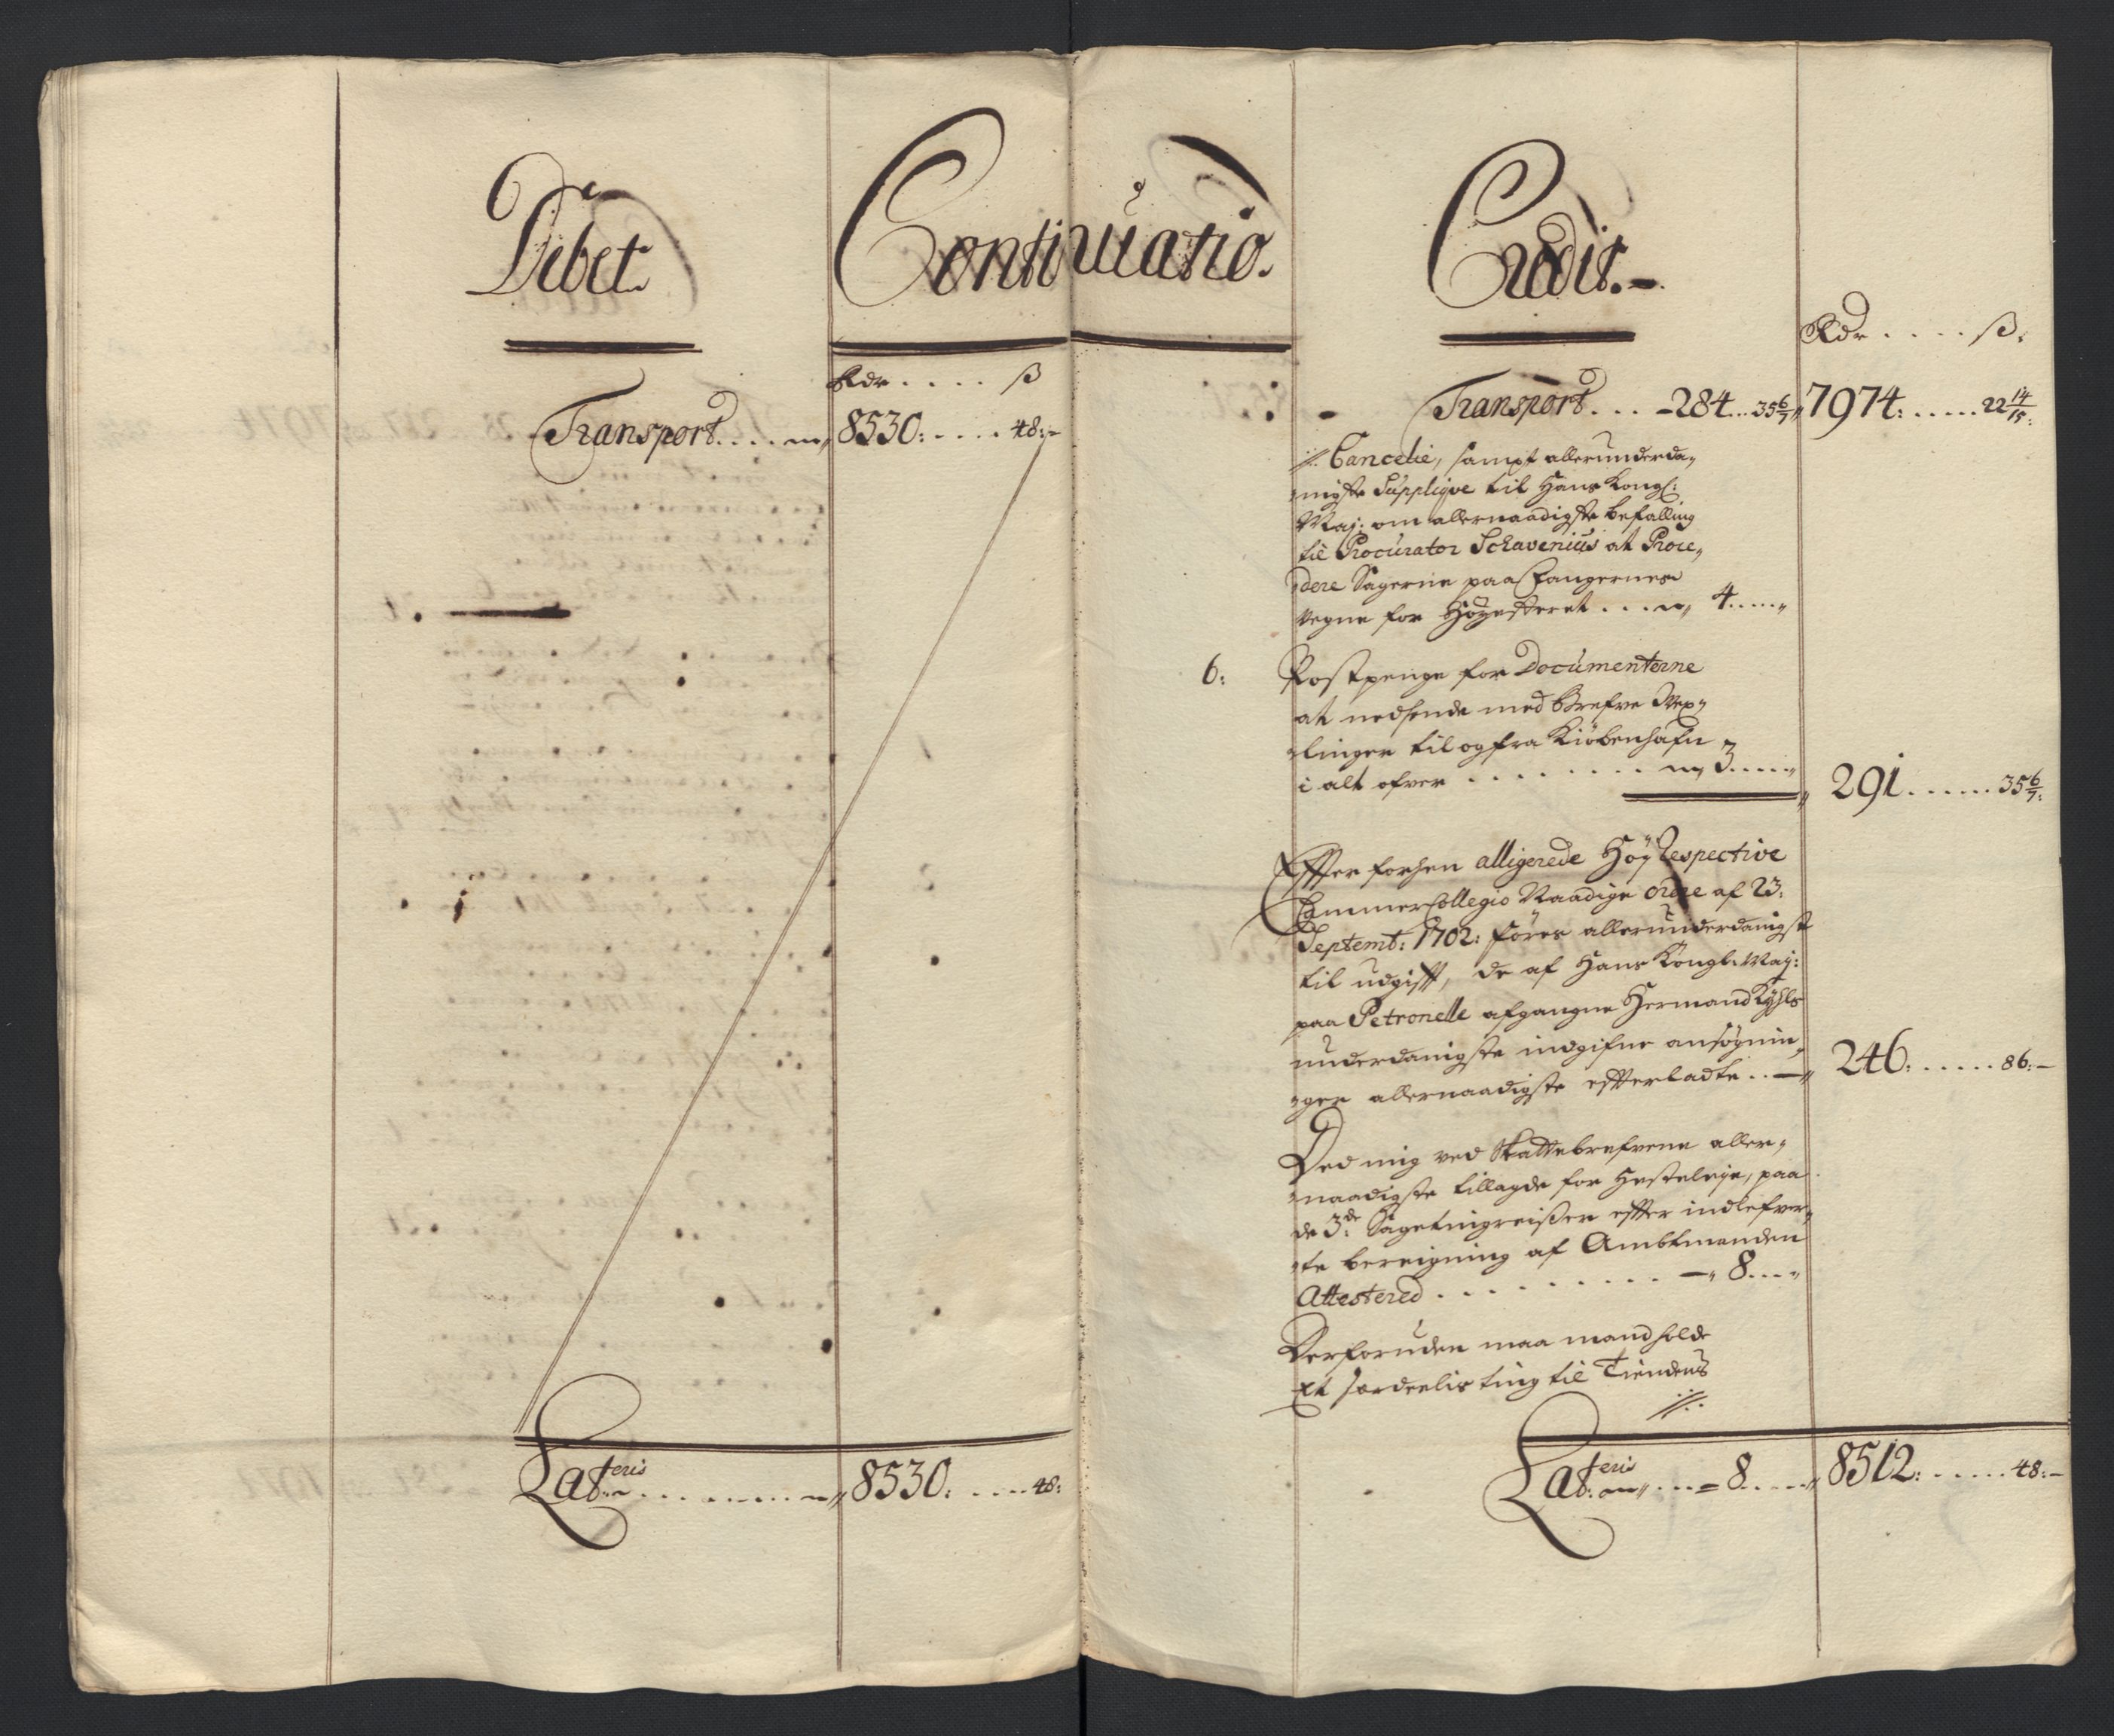 Debet
Continuatio.
Rdr .... ß
Transport .... 8530: .... 48:-
Lateris ........ 8530: .... 48:
Credit.-
Rdr .... ß:
Transport ... 284 ... 35 6/7 7974: ..... 22 14/15:
Cancelie, sampt allerunderda-
nigste Supplique til Hans Kongl:
Maj: om allernaadigste befalling
til Procurator Schavenius at Proce-
dere Sagerne paa Fangernes
vegne for Høyesteret .... 4.....
6: Postpenge for Documenterne
at nedsende med Brefve Vex-
linger til og fra Kiöbenhafn
i alt ofver ........ 3..... 291...... 35 6/7:
Effter forhen alligerede Höy Respective
Cammer Collegio Naadige ordre af 23:
Septemt: 1702: föres allerunderdanigst
til udgifft, de af Hans Kongl: May:
paa Petronelle afgangne Hermand Kyhls
underdanigste indgifne ansøgnin-
ger allernaadigste efterladte .. 246: ..... 86:-
Ded mig ved Skattebrefvene aller-
naadigste tillagde for Hesteleye, paa
de 3de: Sagetingreiser effter indlefver-
te bereigning af Ambtmanden
Attestered ........ 8....
Derforuden maa mand holde
Et serdeelis ting til Tiendens
Lateris .... 8..... 8512: ...... 48:-